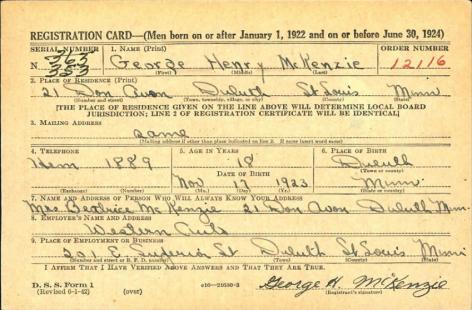 REGISTRATION CARD—(Men born on or after January 1, 1922 and on or before June 30, 1924)
SERIAL NUMBER 1. NAME (Print) ORDER NUMBER
N 363 George Henry McKenzie 12116
353 (First) (Middle) (Last)
2. PLACE OF RESIDENCE (Print)
21 Don Avon Duluth St Louis Minn
(Number and street) (Town, township, village, or city) (County) (State)
[THE PLACE OF RESIDENCE GIVEN ON THE LINE ABOVE WILL DETERMINE LOCAL BOARD
JURISDICTION; LINE 2 OF REGISTRATION CERTIFICATE WILL BE IDENTICAL]
3. MAILING ADDRESS
same
[Mailing address if other than place indicated on line 2. If same insert word same]
4. TELEPHONE 5. AGE IN YEARS 6. PLACE OF BIRTH
Hem 1889 18 Duluth
DATE OF BIRTH (Town or county)
Nov 1923 Minn
(Exchange) (Number) (Mo.) (Day) (Yr.) (State or country)
7. NAME AND ADDRESS OF PERSON WHO WILL ALWAYS KNOW YOUR ADDRESS
Mrs. Beatrice McKenzie 21 Don Avon Duluth Minn
8. EMPLOYER'S NAME AND ADDRESS
Western Auto
9. PLACE OF EMPLOYMENT OR BUSINESS
201 E. Superior St Duluth St Louis Minn
(Number and street or R. F. D. number) (Town) (County) (State)
I AFFIRM THAT I HAVE VERIFIED ABOVE ANSWERS AND THAT THEY ARE TRUE.
D. S. S. Form 1 George H. McKenzie
(Revised 6-1-42) (over) (Registrant's signature)